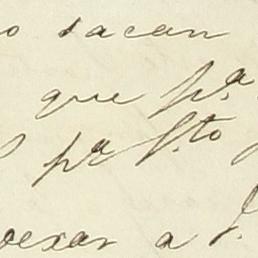 o sacan
que p.ª
pª S.to
dexar a